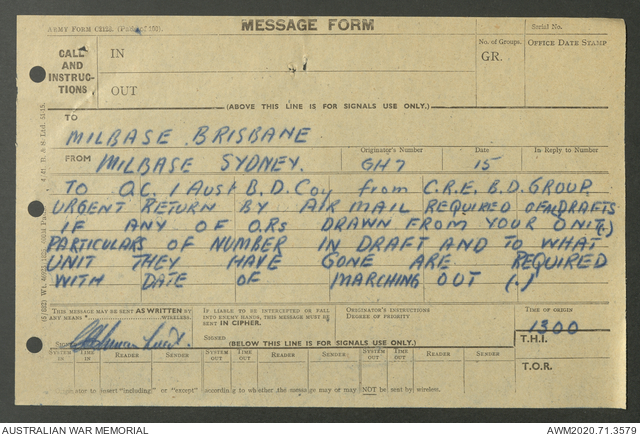 ARMY FORM C2128. (Pads of 100).
MESSAGE FORM
Serial No.
CALL AND INSTRUC- TIONS
IN
OUT
No. of Groups.
GR.
OFFICE DATE STAMP
(ABOVE THIS LINE IS FOR SIGNALS USE ONLY.)
TO
MILBASE BRISBANE
FROM MILBASE SYDNEY.
Originator's Number
GH7
Date
15
In Reply to Number
TO O.C. 1 Aust B.D. Coy from C.R.E. B.D. GROUP
URGENT RETURN BY AIR MAIL REQUIRED OF DRAFTS
IF ANY OF ORs DRAWN FROM YOUR UNIT (.)
PARTICULARS OF NUMBER IN DRAFT AND TO WHAT
UNIT THEY HAVE GONE ARE REQUIRED
WITH DATE OF MARCHING OUT (.)
THIS MESSAGE MAY BE SENT AS WRITTEN BY ANY MEANS WIRELESS.
IF LIABLE TO BE INTERCEPTED OR FALL INTO ENEMY HANDS, THIS MESSAGE MUST BE SENT IN CIPHER.
ORIGINATOR'S INSTRUCTIONS
DEGREE OF PRIORITY
TIME OF ORIGIN
1300
Signed
SIGNED
(BELOW THIS LINE IS FOR SIGNALS USE ONLY.)
T.H.I.
SYSTEM IN
TIME IN
READER
SENDER
SYSTEM OUT
TIME OUT
READER
SENDER
SYSTEM OUT
TIME OUT
READER
SENDER
T.O.R.
to insert "including" or "except" according to whether the message may or may NOT be sent by wireless.
AUSTRALIAN WAR MEMORIAL
AWM2020.71.3579